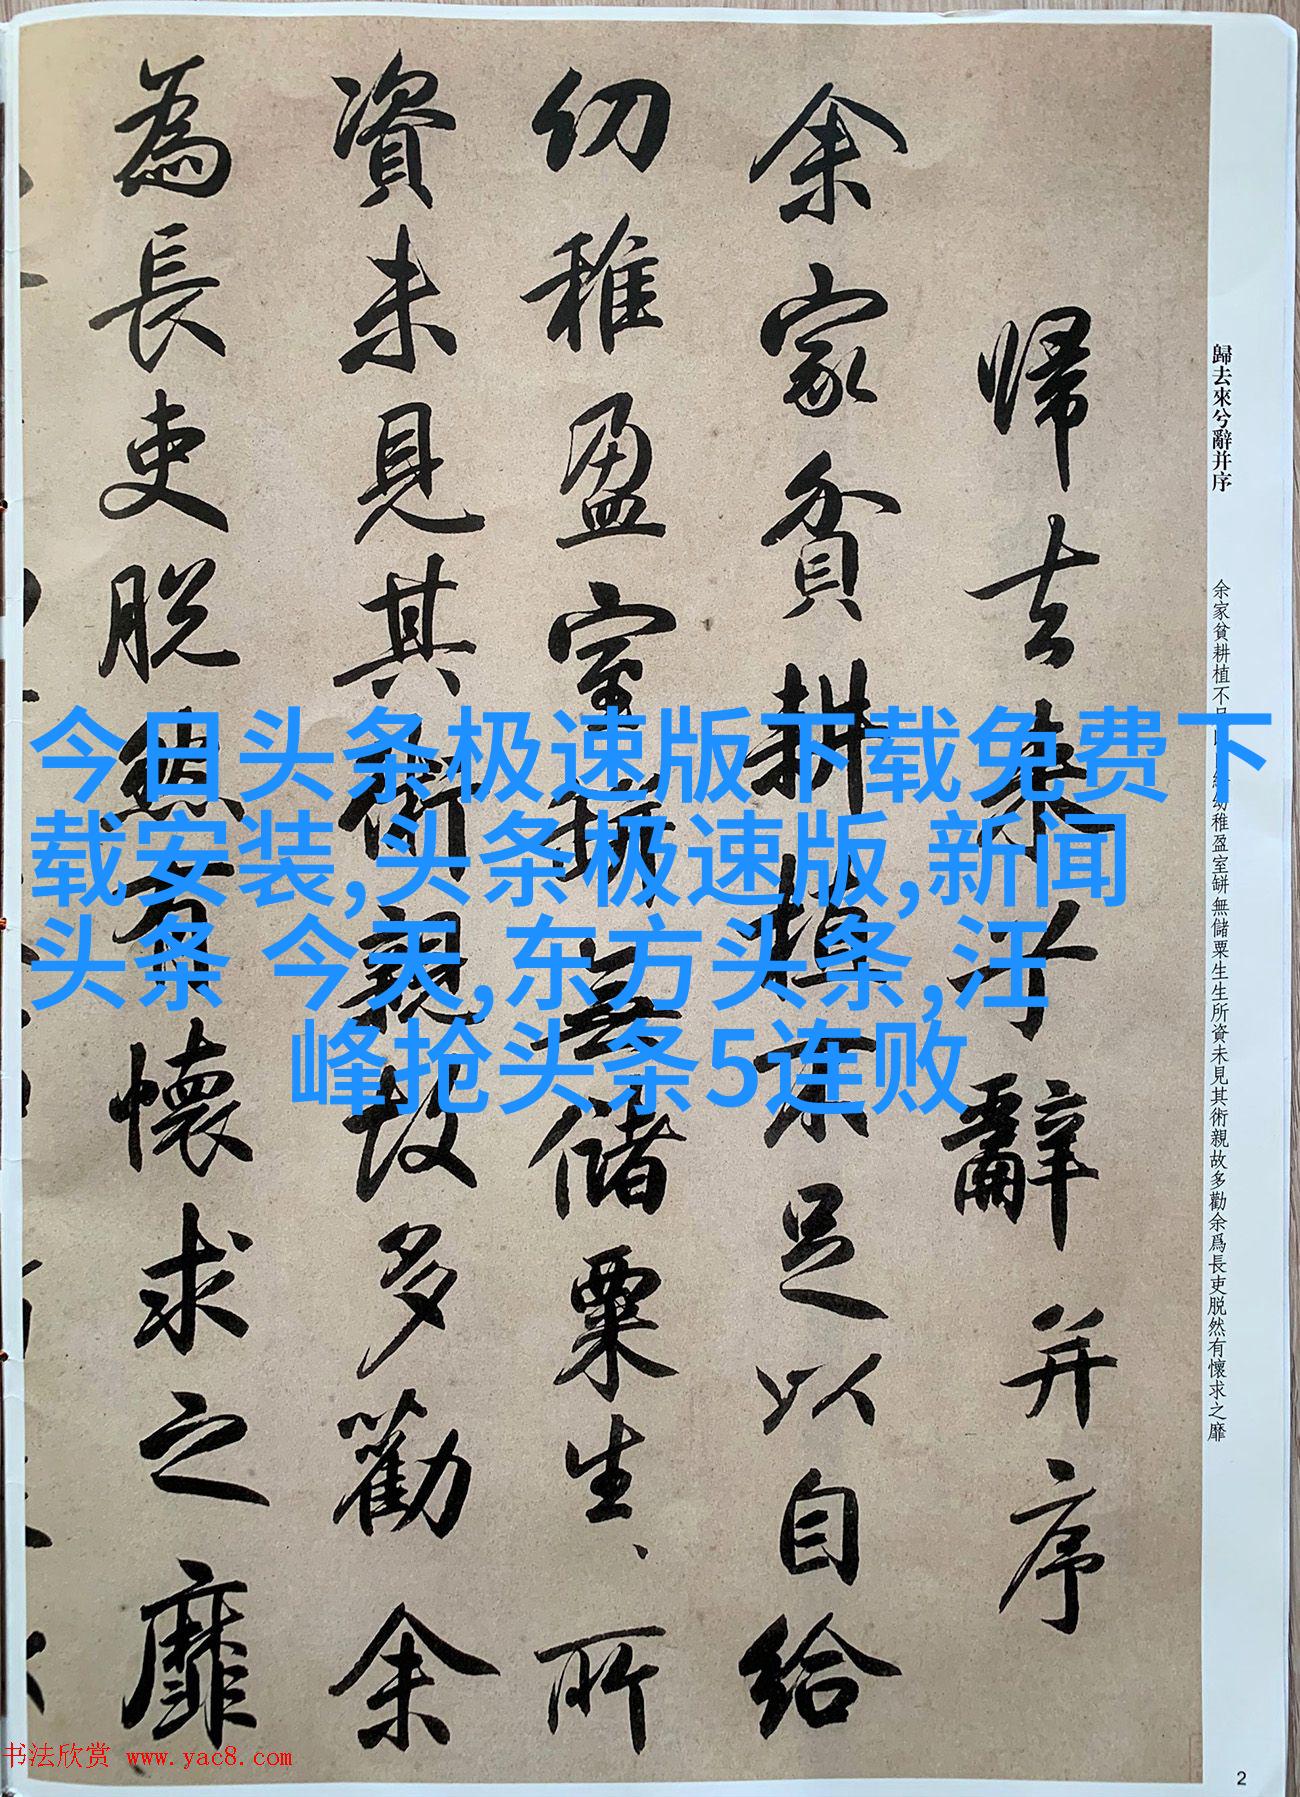 歸去來兮辭并序
余家貧耕植不足以自給幼稚盈室缾無儲粟生生所資未見其術親故多勸余爲長吏脱然有懷求之靡
歸去来兮辭并序
余家貧耕植不足以自給
幼稚盈室缾無儲粟生、所
資未見其術親故多勸余
為長吏脱然有懷求之靡
今日头条极速版下载免费下
载安装,头条极速版,新闻
头条 今天,东方头条,汪
峰抢头条5连败
书法欣赏 www.yac8.com
2